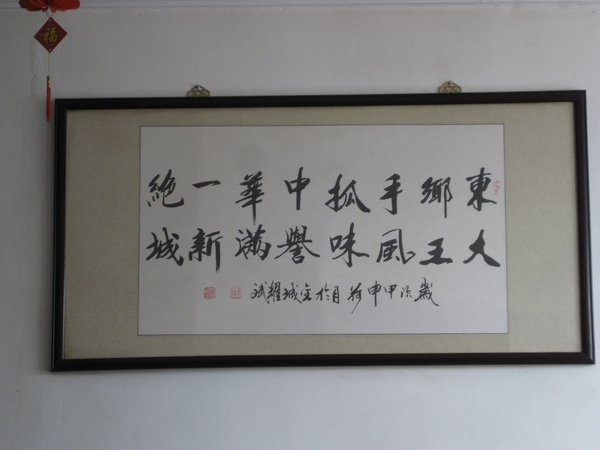 福
東鄉手抓中華一絕
大王風味譽滿新城
歲次甲申荷月於金城耀斌